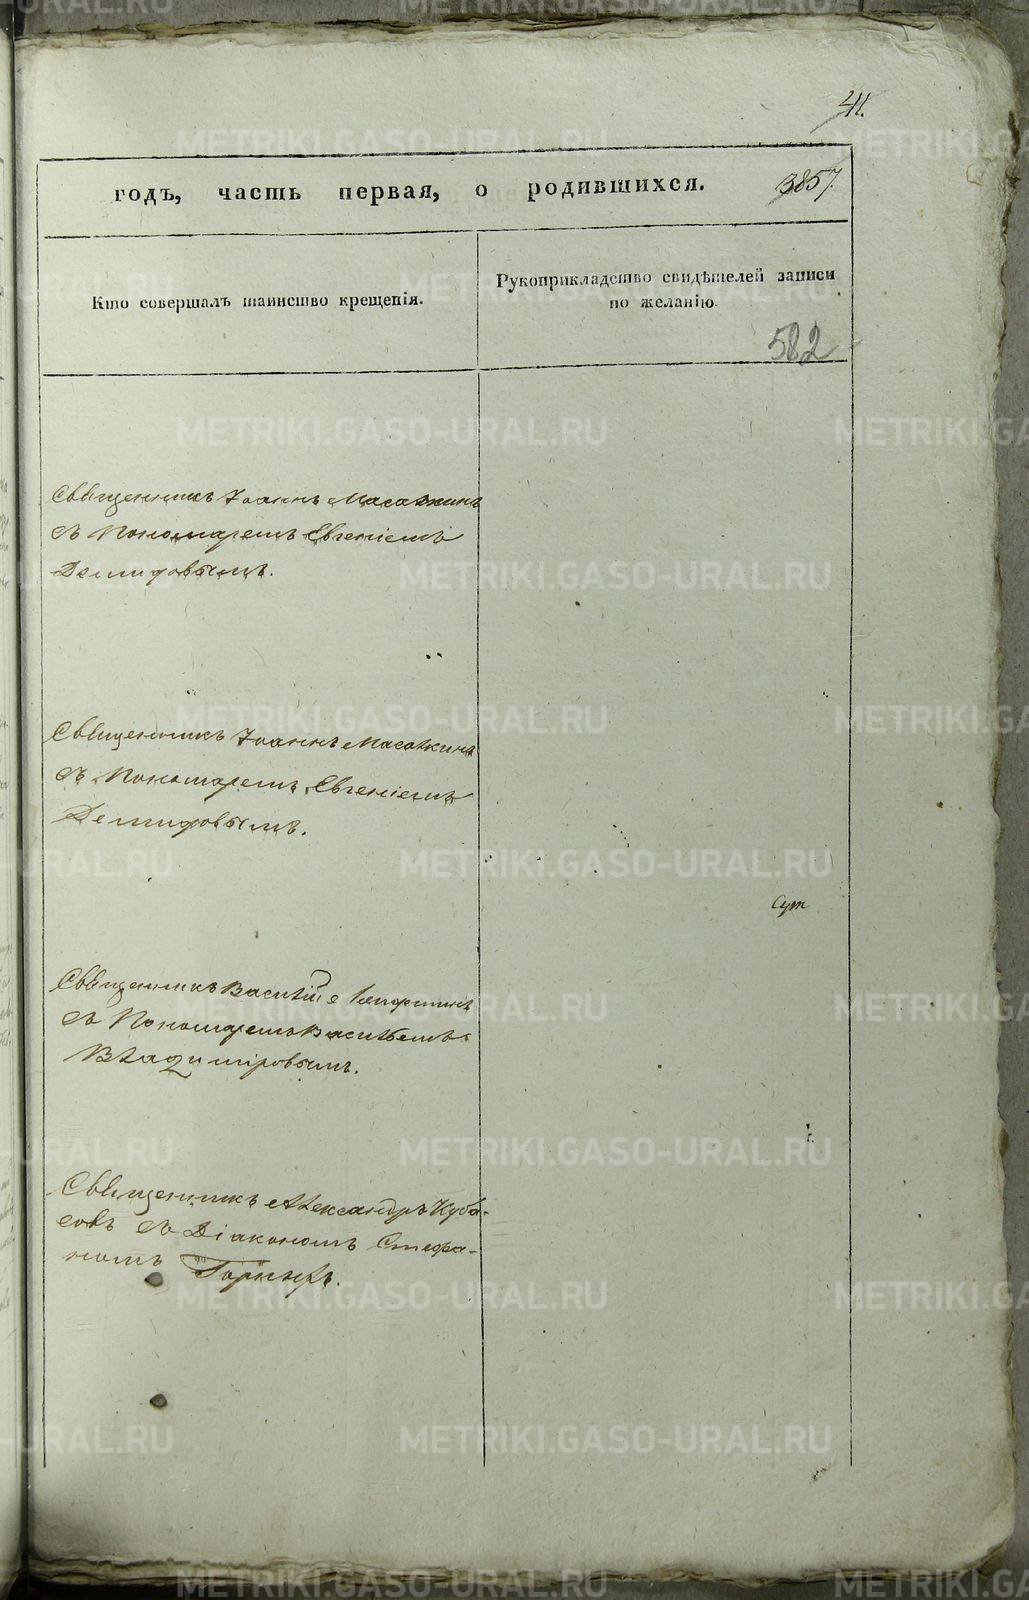 41.
годъ, часть первая, о родившихся.
3857.
Кто совершалъ таинство крещенія.
Рукоприкладство свидѣтелей записи
по желанію.
582
Священникъ Іоаннъ
съ Пономаремъ Евгеніемъ
Демидовымъ.
Священникъ Іоаннъ
съ Пономаремъ Евгеніемъ
Демидовымъ.
Священникъ Василій
съ Пономаремъ Васильемъ
Владиміровымъ.
Священникъ Александръ Куба-
совъ съ Діакономъ Стефа-
номъ
METRIKI.GASO-URAL.RU